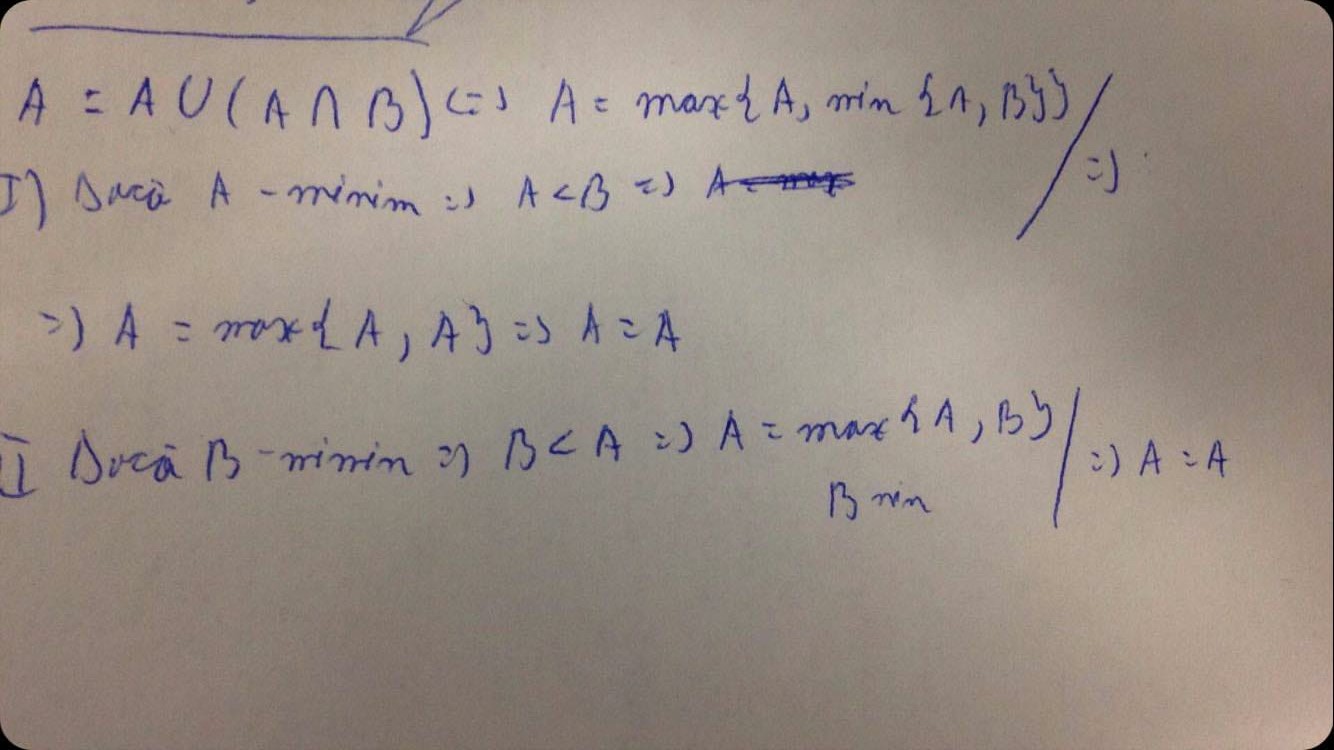 A = A ∪ (A ∩ B) <=> A = max{A, min {A, B}} / =>
I) Dacă A - minim => A < B => A
=> A = max{A, A} => A = A
II Dacă B - minim => B < A => A = max {A, B} / => A = A
B min